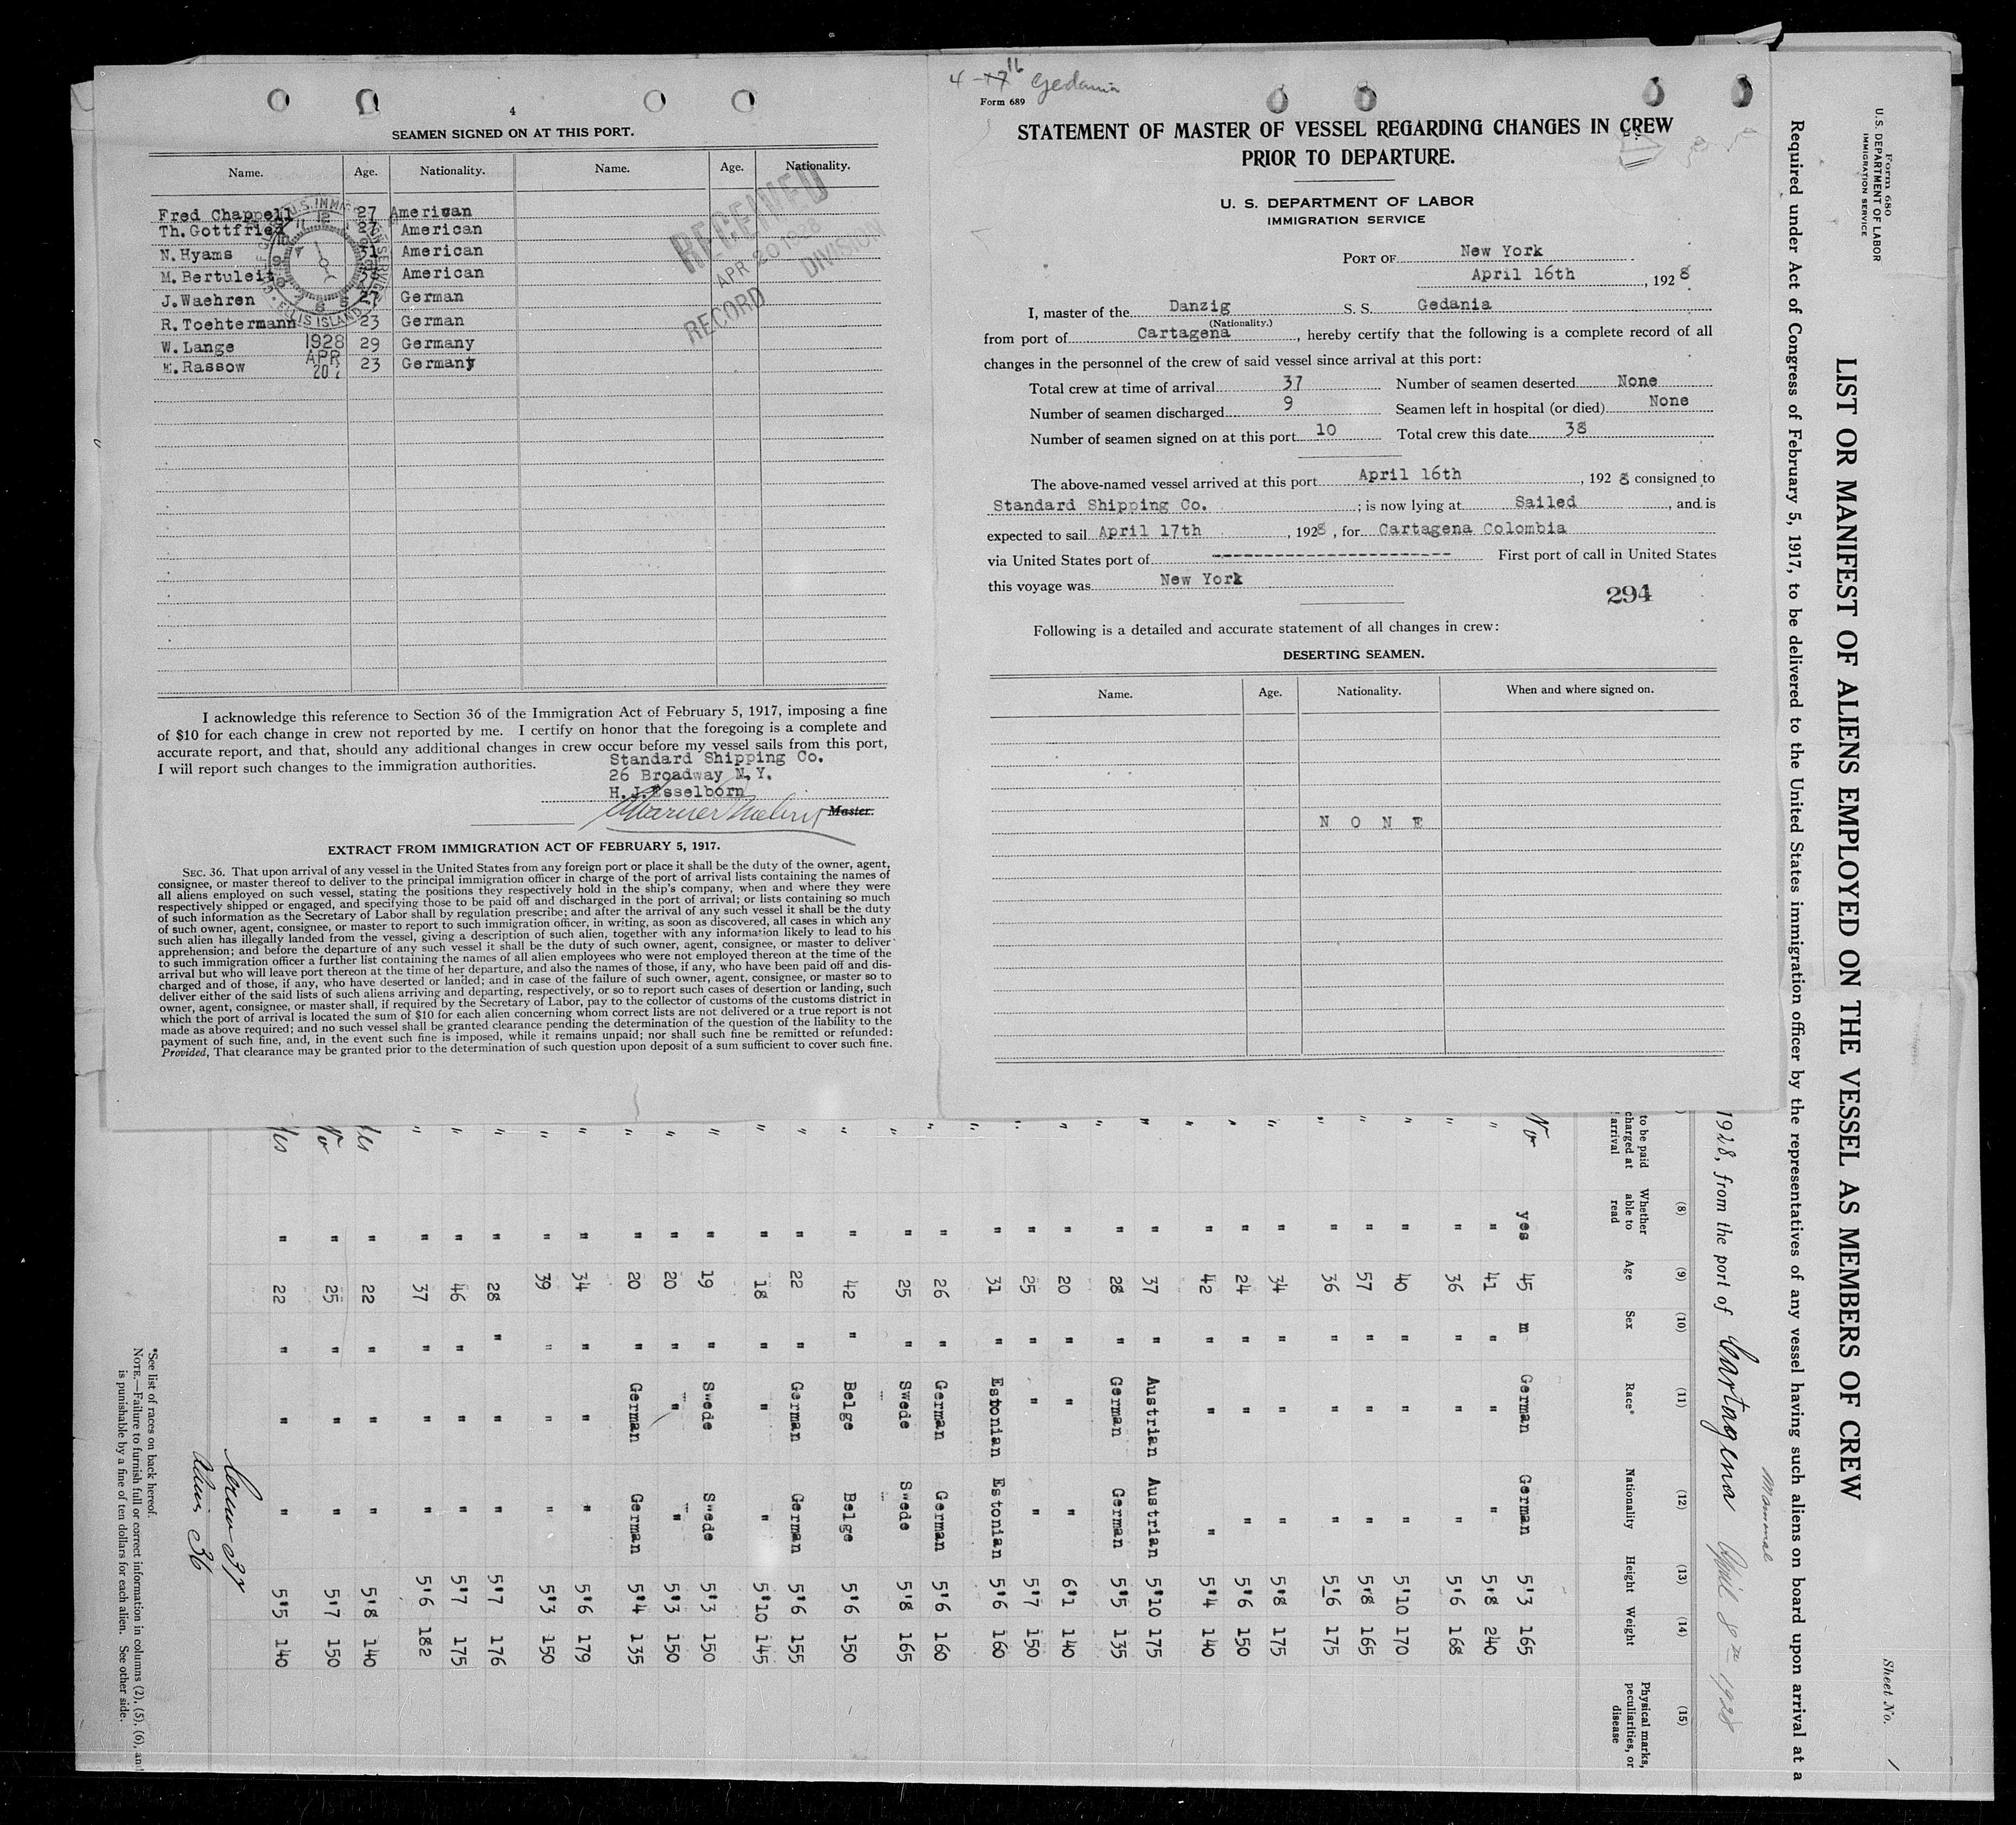 4
SEAMEN SIGNED ON AT THIS PORT.
Name. Age. Nationality. Name. Age. Nationality.
Fred Chappell 27 American
Th. Gottfried 27 American
N. Hyams 31 American
M. Bertuleit American
J. Waehren 27 German
R. Toehtermann 23 German
W. Lange 29 Germany
E. Rassow 23 Germany
U.S. IMMIGRATION SERVICE
ELLIS ISLAND
1928
APR
20
RECEIVED
APR 20 1928
RECORD DIVISION
I acknowledge this reference to Section 36 of the Immigration Act of February 5, 1917, imposing a fine
of $10 for each change in crew not reported by me. I certify on honor that the foregoing is a complete and
accurate report, and that, should any additional changes in crew occur before my vessel sails from this port,
I will report such changes to the immigration authorities.
Standard Shipping Co.
26 Broadway N.Y.
H.J. Esselborn
Master.
EXTRACT FROM IMMIGRATION ACT OF FEBRUARY 5, 1917.
SEC. 36. That upon arrival of any vessel in the United States from any foreign port or place it shall be the duty of the owner, agent,
consignee, or master thereof to deliver to the principal immigration officer in charge of the port of arrival lists containing the names of
all aliens employed on such vessel, stating the positions they respectively hold in the ship's company, when and where they were
respectively shipped or engaged, and specifying those to be paid off and discharged in the port of arrival; or lists containing so much
of such information as the Secretary of Labor shall by regulation prescribe; and after the arrival of any such vessel it shall be the duty
of such owner, agent, consignee, or master to report to such immigration officer, in writing, as soon as discovered, all cases in which any
such alien has illegally landed from the vessel, giving a description of such alien, together with any information likely to lead to his
apprehension; and before the departure of any such vessel it shall be the duty of such owner, agent, consignee, or master to deliver
to such immigration officer a further list containing the names of all alien employees who were not employed thereon at the time of the
arrival but who will leave port thereon at the time of her departure, and also the names of those, if any, who have been paid off and dis-
charged and of those, if any, who have deserted or landed; and in case of the failure of such owner, agent, consignee, or master so to
deliver either of the said lists of such aliens arriving and departing, respectively, or so to report such cases of desertion or landing, such
owner, agent, consignee, or master shall, if required by the Secretary of Labor, pay to the collector of customs of the customs district in
which the port of arrival is located the sum of $10 for each alien concerning whom correct lists are not delivered or a true report is not
made as above required; and no such vessel shall be granted clearance pending the determination of the question of the liability to the
payment of such fine, and, in the event such fine is imposed, while it remains unpaid; nor shall such fine be remitted or refunded:
Provided, That clearance may be granted prior to the determination of such question upon deposit of a sum sufficient to cover such fine.
4-17 16 Gedania
Form 689
STATEMENT OF MASTER OF VESSEL REGARDING CHANGES IN CREW
PRIOR TO DEPARTURE.
U. S. DEPARTMENT OF LABOR
IMMIGRATION SERVICE
PORT OF New York
April 16th, 1928
I, master of the Danzig S. S. Gedania
(Nationality.)
from port of Cartagena, hereby certify that the following is a complete record of all
changes in the personnel of the crew of said vessel since arrival at this port:
Total crew at time of arrival 37 Number of seamen deserted None
Number of seamen discharged 9 Seamen left in hospital (or died) None
Number of seamen signed on at this port 10 Total crew this date 38
The above-named vessel arrived at this port April 16th, 1928 consigned to
Standard Shipping Co.; is now lying at Sailed, and is
expected to sail April 17th, 1928, for Cartagena Colombia
via United States port of ---------------------- First port of call in United States
this voyage was New York
294
Following is a detailed and accurate statement of all changes in crew:
DESERTING SEAMEN.
Name. Age. Nationality. When and where signed on.
N O N E
Form 680
U. S. DEPARTMENT OF LABOR
IMMIGRATION SERVICE
Sheet No. 1
LIST OR MANIFEST OF ALIENS EMPLOYED ON THE VESSEL AS MEMBERS OF CREW
Required under Act of Congress of February 5, 1917, to be delivered to the United States immigration officer by the representatives of any vessel having such aliens on board upon arrival at a
1928, from the port of Cartagena April 8th 1928
(8) (9) (10) (11) (12) (13) (14) (15)
to be paid charged at arrival Whether able to read Age Sex Race* Nationality Height Weight Physical marks, peculiarities, or disease
No yes 45 m German German 5'3 165
" " 41 " " " 5'8 240
" " 36 " " " 5'6 168
" " 40 " " " 5'10 170
" " 57 " " " 5'8 165
" " 36 " " " 5'6 175
" " 34 " " " 5'8 175
" " 24 " " " 5'6 150
" " 42 " " " 5'4 140
" " 37 " Austrian Austrian 5'10 175
" " 28 " German German 5'5 135
" " 20 " " " 6'1 140
" " 25 " " " 5'7 150
" " 31 " Estonian Estonian 5'6 160
" " 26 " German German 5'6 160
" " 25 " Swede Swede 5'8 165
" " 42 " Belge Belge 5'6 150
" " 22 " German German 5'6 155
" " 18 " " " 5'10 145
" " 19 " Swede Swede 5'3 150
" " 20 " " " 5'3 150
" " 20 " German German 5'4 135
" " 34 " " " 5'6 179
" " 39 " " " 5'3 150
" " 28 " " " 5'7 176
" " 46 " " " 5'7 175
" " 37 " " " 5'6 182
Yes " 22 " " " 5'8 140
No " 25 " " " 5'7 150
Yes " 22 " " " 5'5 140
Crew 37
Aliens 36
*See list of races on back hereof.
NOTE.—Failure to furnish full or correct information in columns (2), (5), (6), and
is punishable by a fine of ten dollars for each alien. See other side.